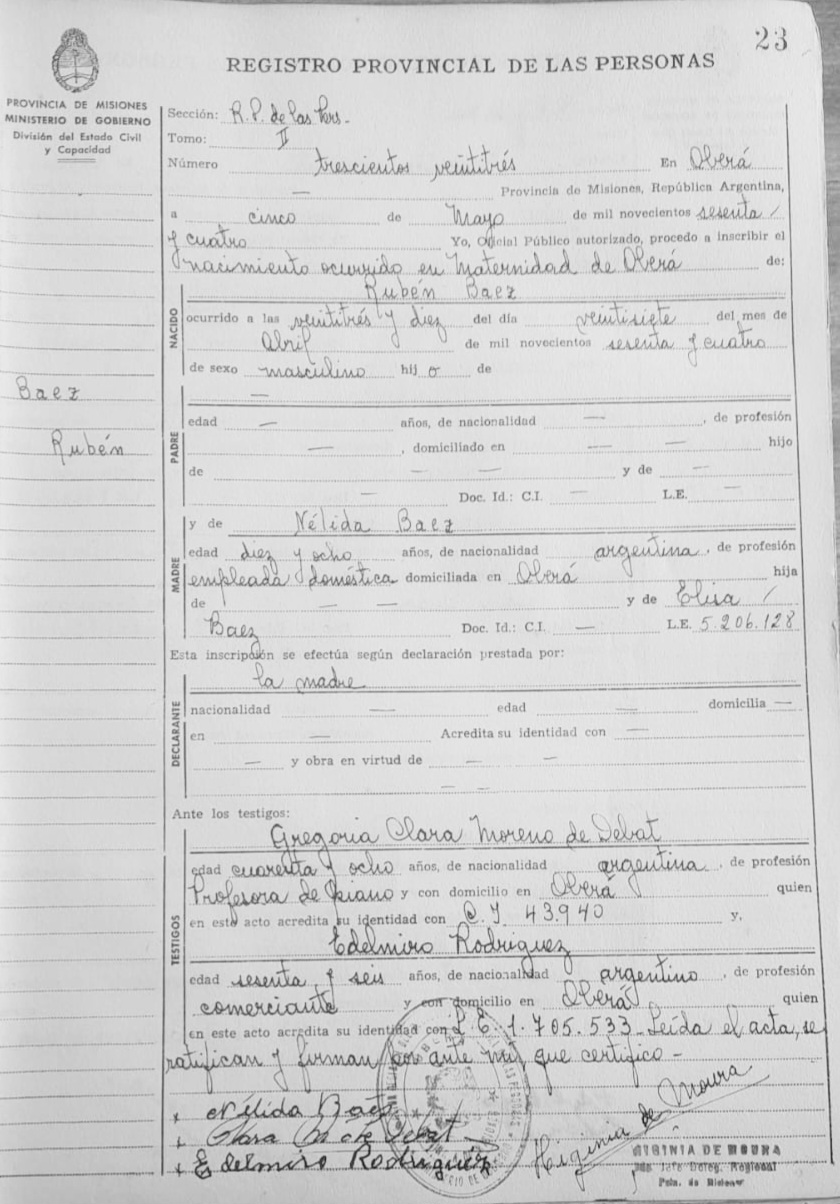 23
REGISTRO PROVINCIAL DE LAS PERSONAS
PROVINCIA DE MISIONES
MINISTERIO DE GOBIERNO
División del Estado Civil
y Capacidad
Baez
Rubén
Sección: R.P. de las Pers.
Tomo: II
Número trescientos veintitrés En Oberá
— Provincia de Misiones, República Argentina,
a cinco de Mayo de mil novecientos sesenta /
y cuatro Yo, Oficial Público autorizado, procedo a inscribir el
nacimiento ocurrido en Maternidad de Oberá de:
NACIDO
Rubén Baez
ocurrido a las veintitrés y diez del día veintisiete del mes de
Abril de mil novecientos sesenta y cuatro
de sexo masculino hijo de
—
PADRE
edad — años, de nacionalidad — , de profesión
— , domiciliado en — — hijo
de — — y de —
— Doc. Id.: C.I. — L.E. —
MADRE
y de Nélida Baez
edad diez y ocho años, de nacionalidad argentina , de profesión
empleada doméstica domiciliada en Oberá hija
de — — y de Elisa /
Baez Doc. Id.: C.I. — L.E. 5.206.128
Esta inscripción se efectúa según declaración prestada por:
DECLARANTE
la madre
nacionalidad — edad — domicilia —
en — Acredita su identidad con —
— y obra en virtud de — —
— —
Ante los testigos:
TESTIGOS
Gregoria Clara Moreno de Debat
edad cuarenta y ocho años, de nacionalidad argentina , de profesión
Profesora de Piano y con domicilio en Oberá quien
en este acto acredita su identidad con C.I 43.940 y,
Edelmiro Rodriguez
edad sesenta y seis años, de nacionalidad argentino , de profesión
comerciante y con domicilio en Oberá quien
en este acto acredita su identidad con L.E. 1.705.533 - Leída el acta, se
ratifican y firman por ante mí, que certifico -
x Nélida Baez
x Clara M de Debat
x Edelmiro Rodriguez
Higinia de Moura
HIGINIA DE MOURA
Jefe Deleg. Regional
Pcia. de Misiones